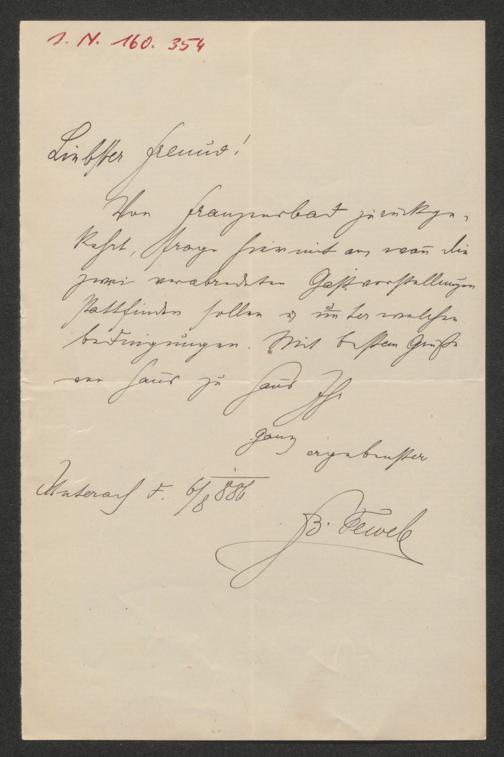 I. N. 160.354
Liebster Freund!
Von Franzensbad zurückge-
kehrt, frage hiermit an, wan̄ die
zwei verabredeten Gastvorstellungen
stattfinden sollen u unter welchen
bedingungen. Mit bestem Gruße
von Haus zu Haus Ihr
ganz ergebenster
Unterach d. 6/8 886
B.